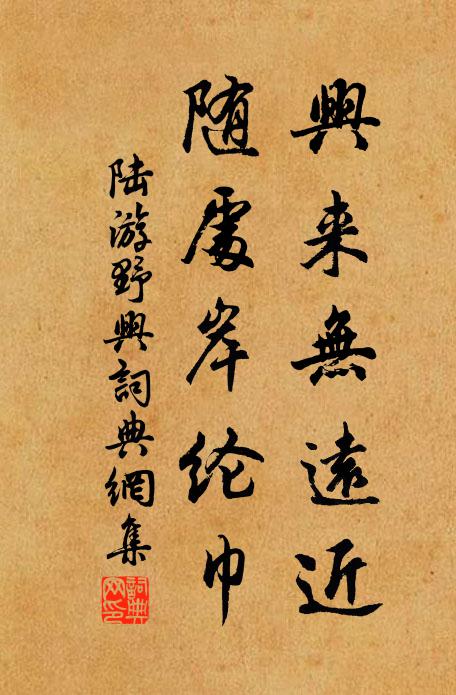 興来無遠近
随處岸纶巾
陆游野興詞典網集
詞典网印